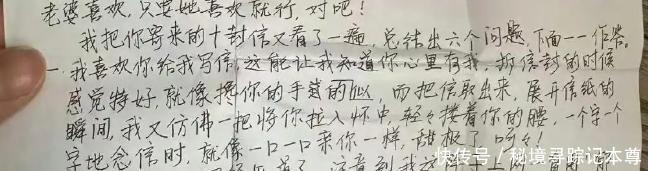 老婆喜欢,只要她喜欢就行,对吧!
我把你寄来的十封信又看了一遍,总结出六个问题,下面一一作答。
一.我喜欢你给我写信,这能让我知道你心里有我,拆信封的时候
感觉特好,就像搀你的手似的,而把信取出来,展开信纸的
瞬间,我又仿佛一把将你拉入怀中,轻轻搂着你的腰,一个字一个
字地念信时,就像一口一口亲你一样,甜极了
快传号 / 秘境寻踪记本尊